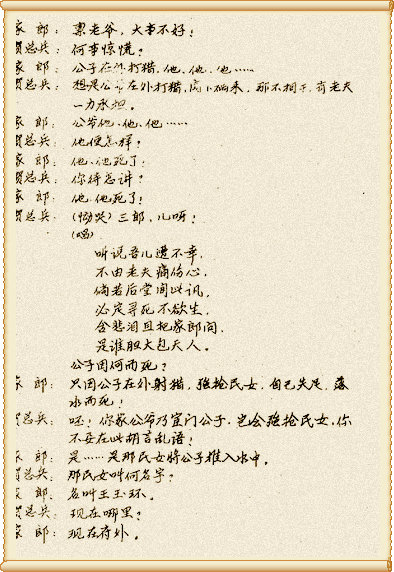 家 郎：禀老爷，大事不好！
贺总兵：何事惊慌？
家 郎：公子在外打猎，他、他、他……
贺总兵：想是公子在外打猎，闯下祸来，那不相干，有老夫
一力承担。
家 郎：公爷他、他、他……
贺总兵：他便怎样？
家 郎：他、他死了！
贺总兵：你待怎讲？
家 郎：他、他死了！
贺总兵：(恸哭)三郎，儿呀！
(唱)
听说吾儿遭不幸，
不由老夫痛伤心，
倘若后堂闻此讯，
必定寻死不欲生，
含悲泪且把家郎问，
是谁胆大包天人。
公子因何而死？
家 郎：只因公子在外射猎，强抢民女，自己失足，落
水而死！
贺总兵：呸！你家公爷乃宦门公子，岂会强抢民女，你
不要在此胡言乱语！
家 郎：是……是那民女将公子推入水中。
贺总兵：那民女叫何名字？
家 郎：名叫王玉环。
贺总兵：现在哪里？
家 郎：现在府外。